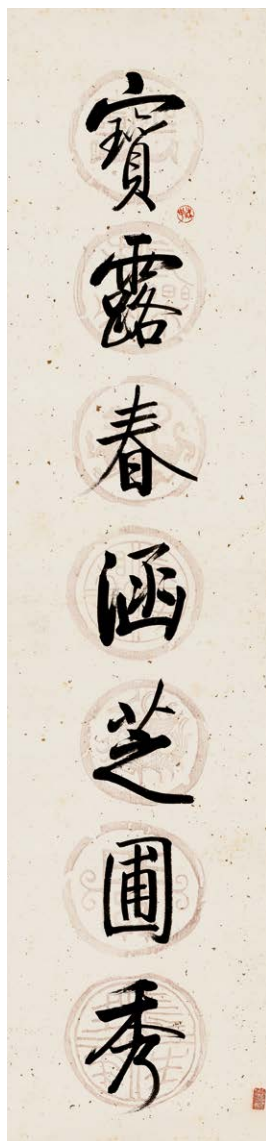 寶露春涵芝圃秀